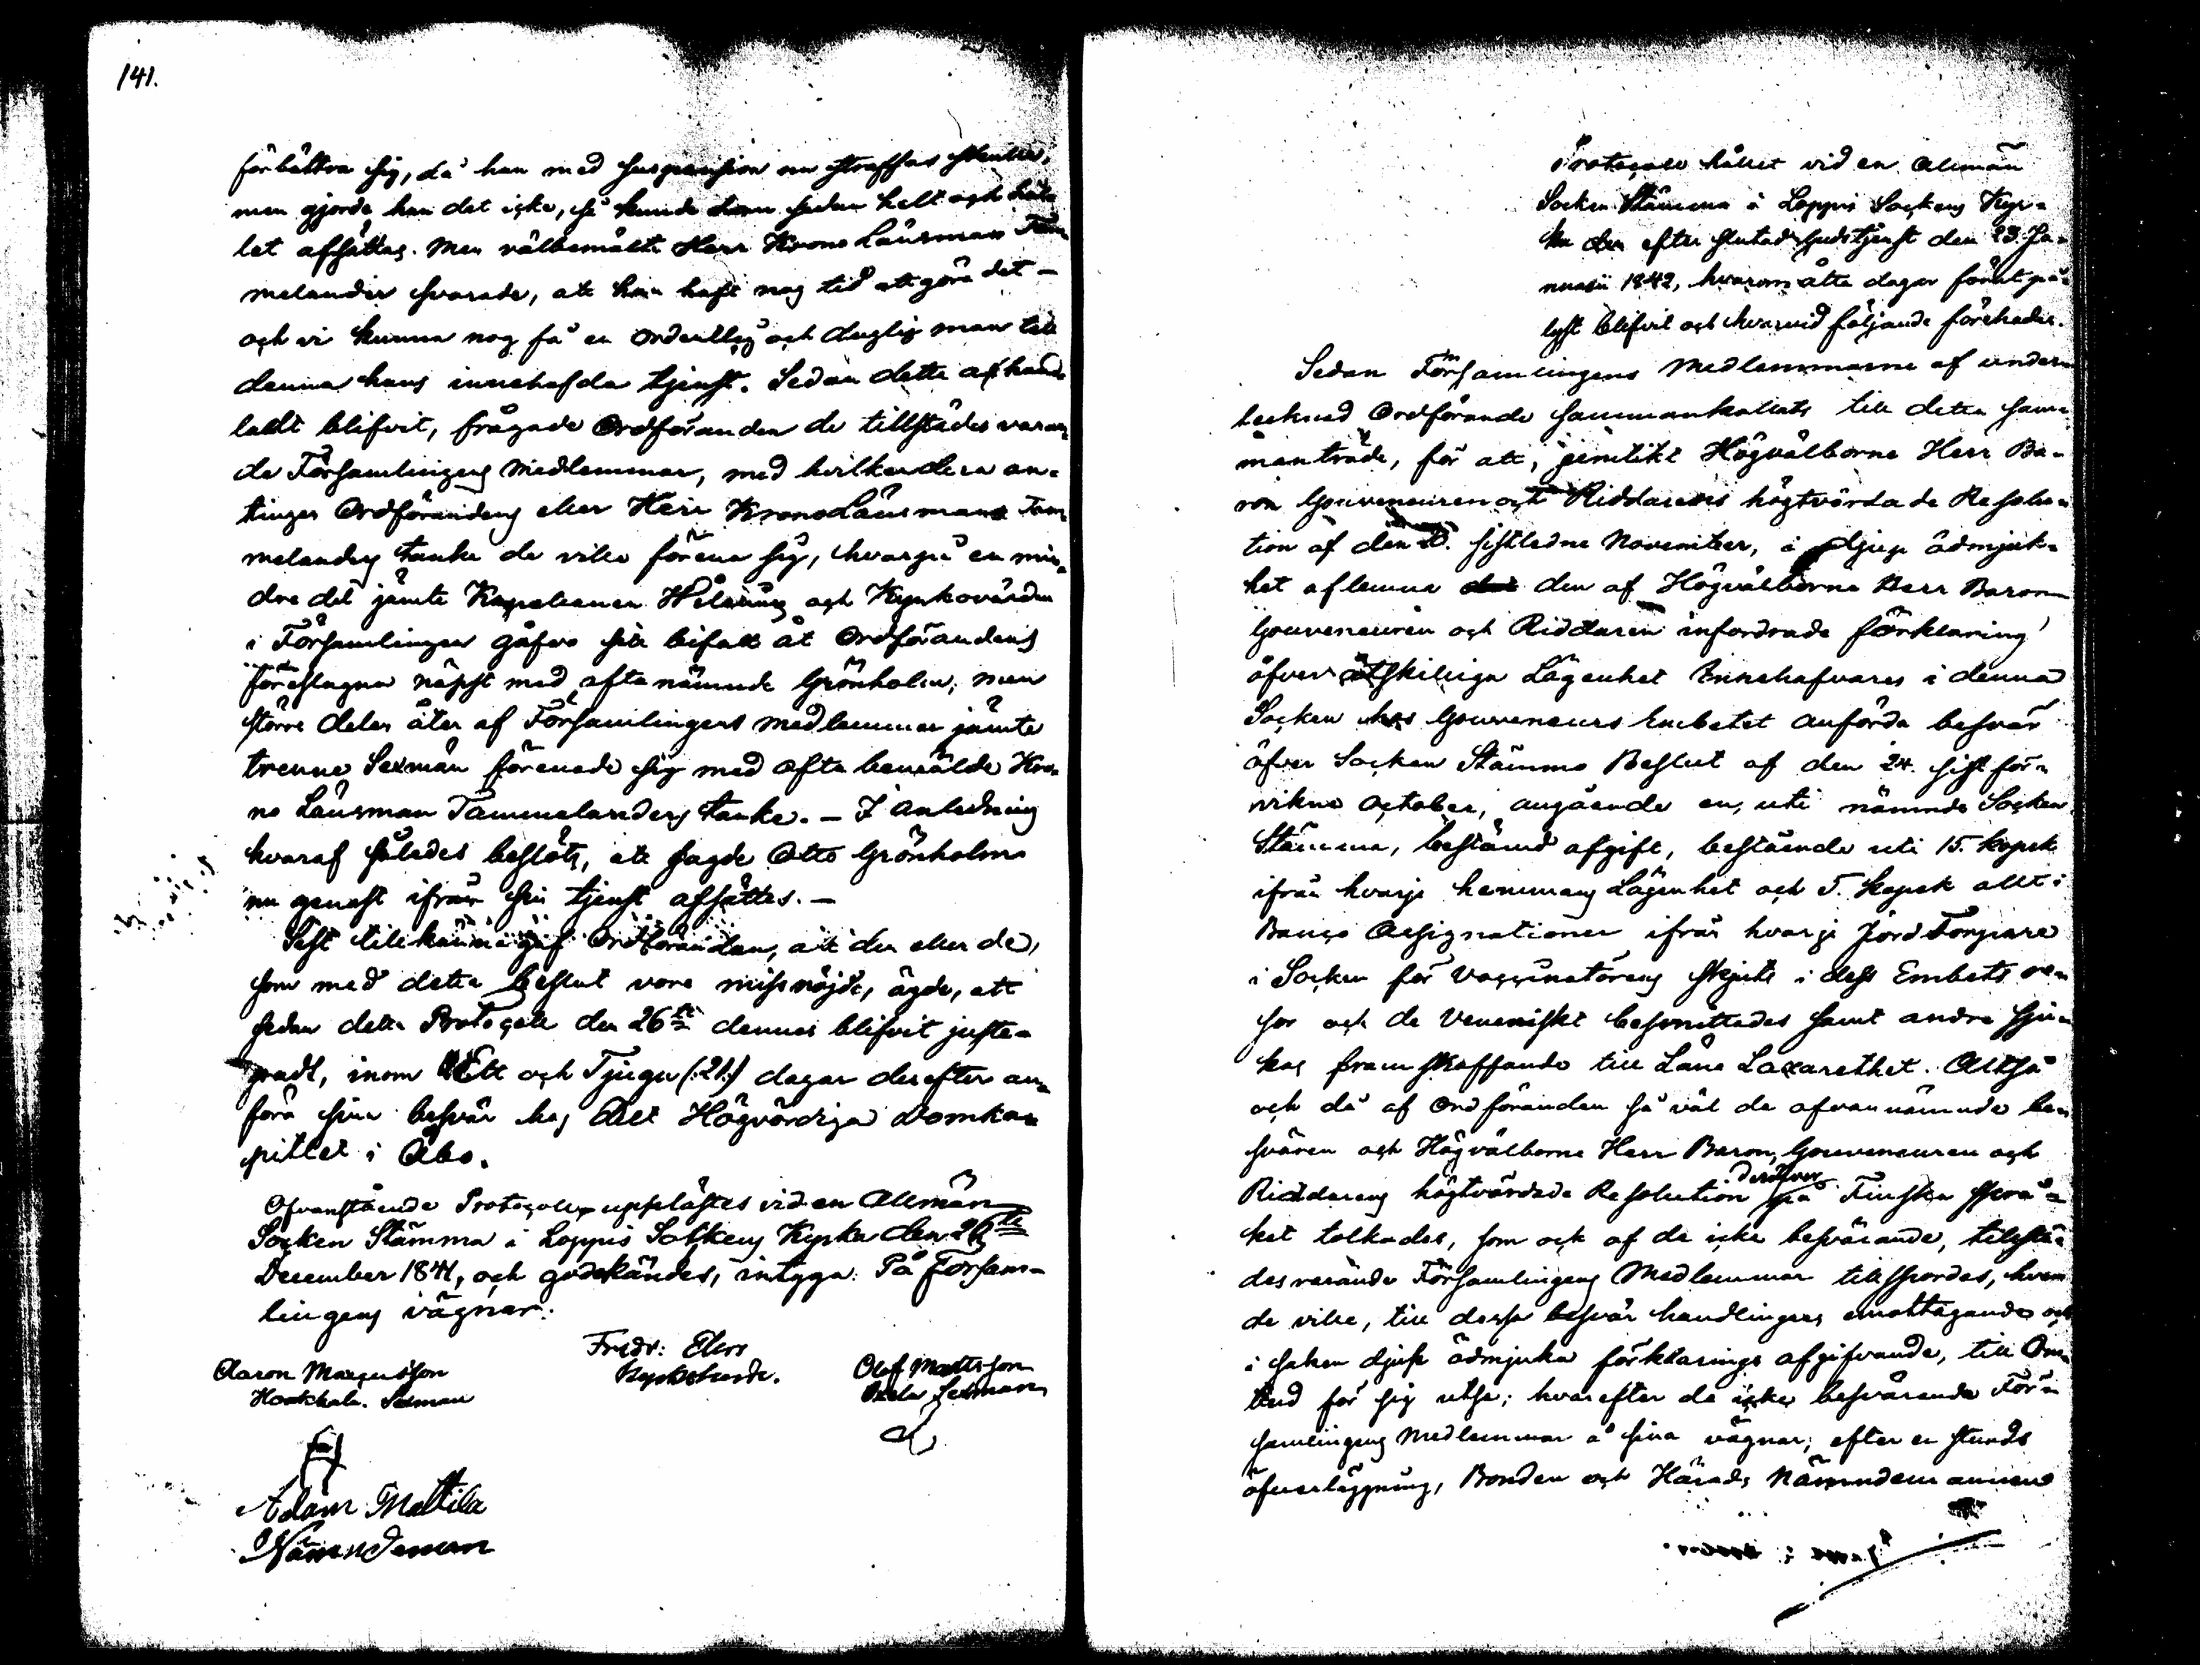 141.
förbättra sig, då han med suspension nu straffas skulle,
men gjorde han det icke, så kunde han sedan helt och hål-
let afsättas. Men välbemälte Herr Krono Länsman Tam-
melander svarade, att han haft nog tid att göra det –
och vi kunna nog få en ordentlig och duglig man till
denna hans innehafda tjenst. Sedan detta afhand-
ladt blifvit, frågade Ordföranden de tillstädes varan-
de Församlingens Medlemmar, med hvilkendera an-
tingen Ordförandens eller Herr Krono Länsman Tam-
melanders tanke de ville förena sig, hvarpå en min-
dre del jämte Kapellanen Helsing och Kyrkovärden
i Församlingen gåfvo sitt bifall åt Ordförandens
föreslagna näpst med ofta nämnde Grönholm; men
större delen åter af Församlingens medlemmar jämte
trenne Sexmän förenade sig med ofta bemälde Kro-
no Länsman Tammelanders tanke. – I anledning
hvaraf således beslöts, att sagde Otto Grönholm
nu genast ifrån sin tjenst afsattes. –
Sist tillkännagaf Ordföranden, att den eller de,
som med detta beslut vore missnöjde, ägde, att
sedan detta Protocoll den 26te dennes blifvit juste-
radt, inom Ett och Tjugu (:21:) dagar derefter an-
föra sina besvär hos Det Högvördiga Domka-
pitlet i Åbo.
Ofvanstående Protocoll upplästes vid en Allmän
Socken Stämma i Loppis Sockens Kyrka den 26te
December 1841, och godkändes, intyga: På Försam-
lingens vägnar:
Fredr: Elers
Kyrkoherde.
Aaron Marcusson
Sexman
Olof Mattsson
Sexman
Adam Mattila
Nämndeman
Protocoll hållet vid en Allmän
Socken Stämma i Loppis Sockens Kyr-
ka efter slutad Gudstjenst den 23. Ja-
nuarii 1842, hvarom åtta dagar förut på-
lyst blifvit och hvarvid följande förehades.
Sedan Församlingens Medlemmarne af under-
tecknad Ordförande sammankallats till detta sam-
manträde, för att, jemlikt Högvälborne Herr Ba-
ron Gouverneuren och Riddarens högtvördade Resolu-
tion af den sistledne November, i djup ödmjuk-
het aflemna den af Högvälborne Herr Baron
Gouverneuren och Riddaren infordrade förklaring
öfver åtskilliga Lägenhet Innehafvares i denna
Socken hos Gouverneurs Embetet anförda besvär
öfver Socken Stämmo Beslut af den 24. sist för-
vikne October, angående en, uti nämnde Socken
Stämma, bestämd afgift, bestående uti 15. kopek
ifrån hvarje hemmans Lägenhet och 5. kopek allt i
Banco Assignationer ifrån hvarje Jord Torpare
i Socken för Vaccinatörens skjuts i dess Embets re-
sor och de Veneriskt besmittades samt andra sju-
kas framskaffande till Läns Lazarethet. Alltså
och då af Ordföranden så väl de ofvannämnde be-
svären och Högvälborne Herr Baron, Gouverneuren och
Riddarens högtvördade Resolution deröfver på Finska språ-
ket tolkades, som ock af de icke besvärande, tillstä-
des varande Församlingens Medlemmar tillspordes, hvem
de ville, till dessa besvärs handlingars emottagande och
i saken djupt ödmjuka förklarings afgifvande, till Om-
bud för sig utse; hvarefter de icke besvärande För-
samlingens Medlemmar å sina vägnar, efter en stunds
öfverläggning, Bonden och Härads Nämndemannen